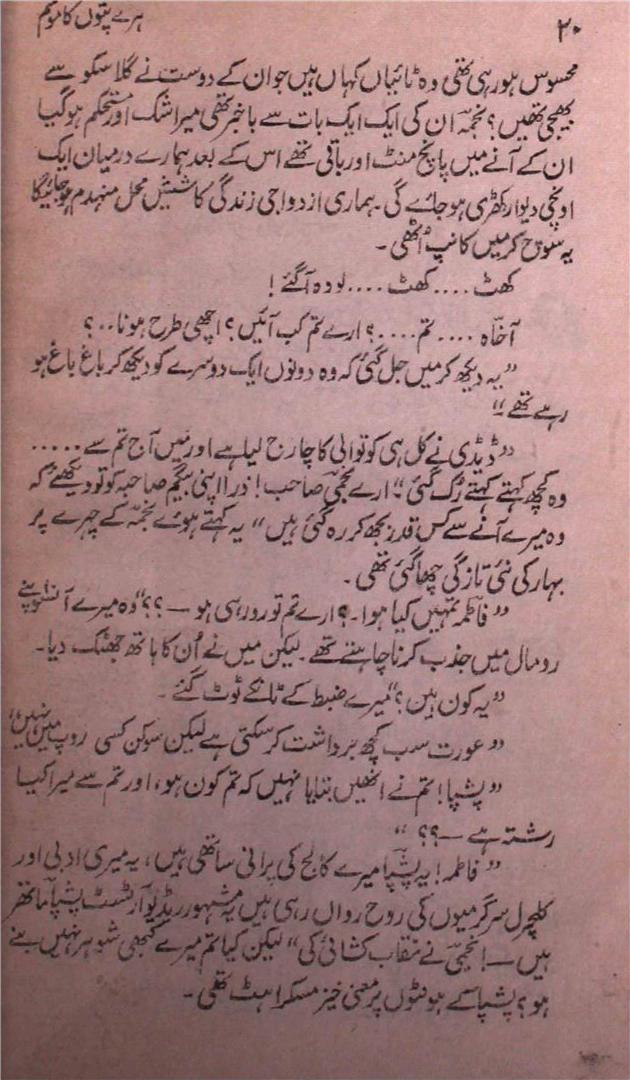 ۲۰
ہرے پتوں کا موسم
محسوس ہو رہی تھی وہ ٹائیاں کہاں ہیں جو ان کے دوست نے گلاسکو سے
بھیجی تھیں؟ نجمہ ان کی ایک ایک بات سے باخبر تھی میرا شک اور مستحکم ہوگیا
ان کے آنے میں پانچ منٹ اور باقی تھے اس کے بعد ہمارے درمیان ایک
اونچی دیوار کھڑی ہوجائے گی۔ ہماری ازدواجی زندگی کا شیش محل منہدم ہوجائیگا
یہ سوچ کر میں کانپ اُٹھی۔
کھٹ .... کھٹ .... لو وہ آگئے!
آخاہ .... تم ....؟ ارے تم کب آئیں؟ اچھی طرح ہونا..؟
"یہ دیکھ کر میں جل گئی کہ وہ دونوں ایک دوسرے کو دیکھ کر باغ باغ ہو
رہے تھے"
"ڈیڈی نے کل ہی کوتوالی کا چارج لیا ہے اور میں آج تم سے .....
وہ کچھ کہتے کہتے رُک گئی" ارے نجمی صاحب! ذرا اپنی بیگم صاحبہ کو تو دیکھئے کہ
وہ میرے آنے سے کس قدر بجھ کر رہ گئی ہیں" یہ کہتے ہوئے نجمہ کے چہرے پر
بہار کی نئی تازگی چھا گئی تھی۔
"فاطمہ تمہیں کیا ہوا۔؟ ارے تم تو رو رہی ہو — ؟؟" وہ میرے آنسو اپنے
رومال میں جذب کرنا چاہتے تھے۔ لیکن میں نے اُن کا ہاتھ جھٹک دیا۔
"یہ کون ہیں؟" میرے ضبط کے ٹانکے ٹوٹ گئے۔
"عورت سب کچھ برداشت کرسکتی ہے لیکن سوکن کسی روپ میں نہیں"
"پشپا! تم نے انھیں بتایا نہیں کہ تم کون ہو، اور تم سے میرا کیا
رشتہ ہے — ؟؟"
"فاطمہ! یہ پشپا میرے کالج کی پرانی ساتھی ہیں، یہ میری ادبی اور
کلچرل سرگرمیوں کی روح رواں رہی ہیں یہ مشہور ریڈیو آرٹسٹ پشپا ماتھر
ہیں —! نجمی نے نقاب کشائی کی" لیکن کیا تم میرے کبھی شوہر نہیں بنے
ہو؟ پشپا کے ہونٹوں پر معنی خیز مسکراہٹ تھی۔